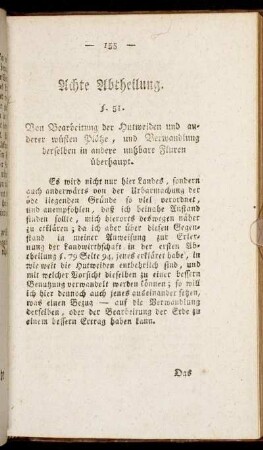 — 155 —
Achte Abtheilung.
§. 51.
Von Bearbeitung der Hutweiden und an-
derer wüsten Plätze, und Verwandlung
derselben in andere nutzbare Fluren
überhaupt.
Es wird nicht nur hier Landes, sondern
auch anderwärts von der Urbarmachung der
öde liegenden Gründe so viel verordnet,
und anempfohlen, daß ich beinahe Anstand
finden sollte, mich hierorts deswegen näher
zu erklären; da ich aber über diesen Gegen-
stand in meiner Anweisung zur Erler-
nung der Landwirthschaft in der ersten Ab-
theilung §. 79 Seite 94, jenes erkläret habe, in
wie weit die Hutweiden entbehrlich sind, und
mit welcher Vorsicht dieselben zu einer bessern
Benutzung verwandelt werden können; so will
ich hier dennoch auch jenes auseinander setzen,
was einen Bezug — auf die Verwandlung
derselben, oder der Bearbeitung der Erde zu
einem bessern Ertrag haben kann.
Das